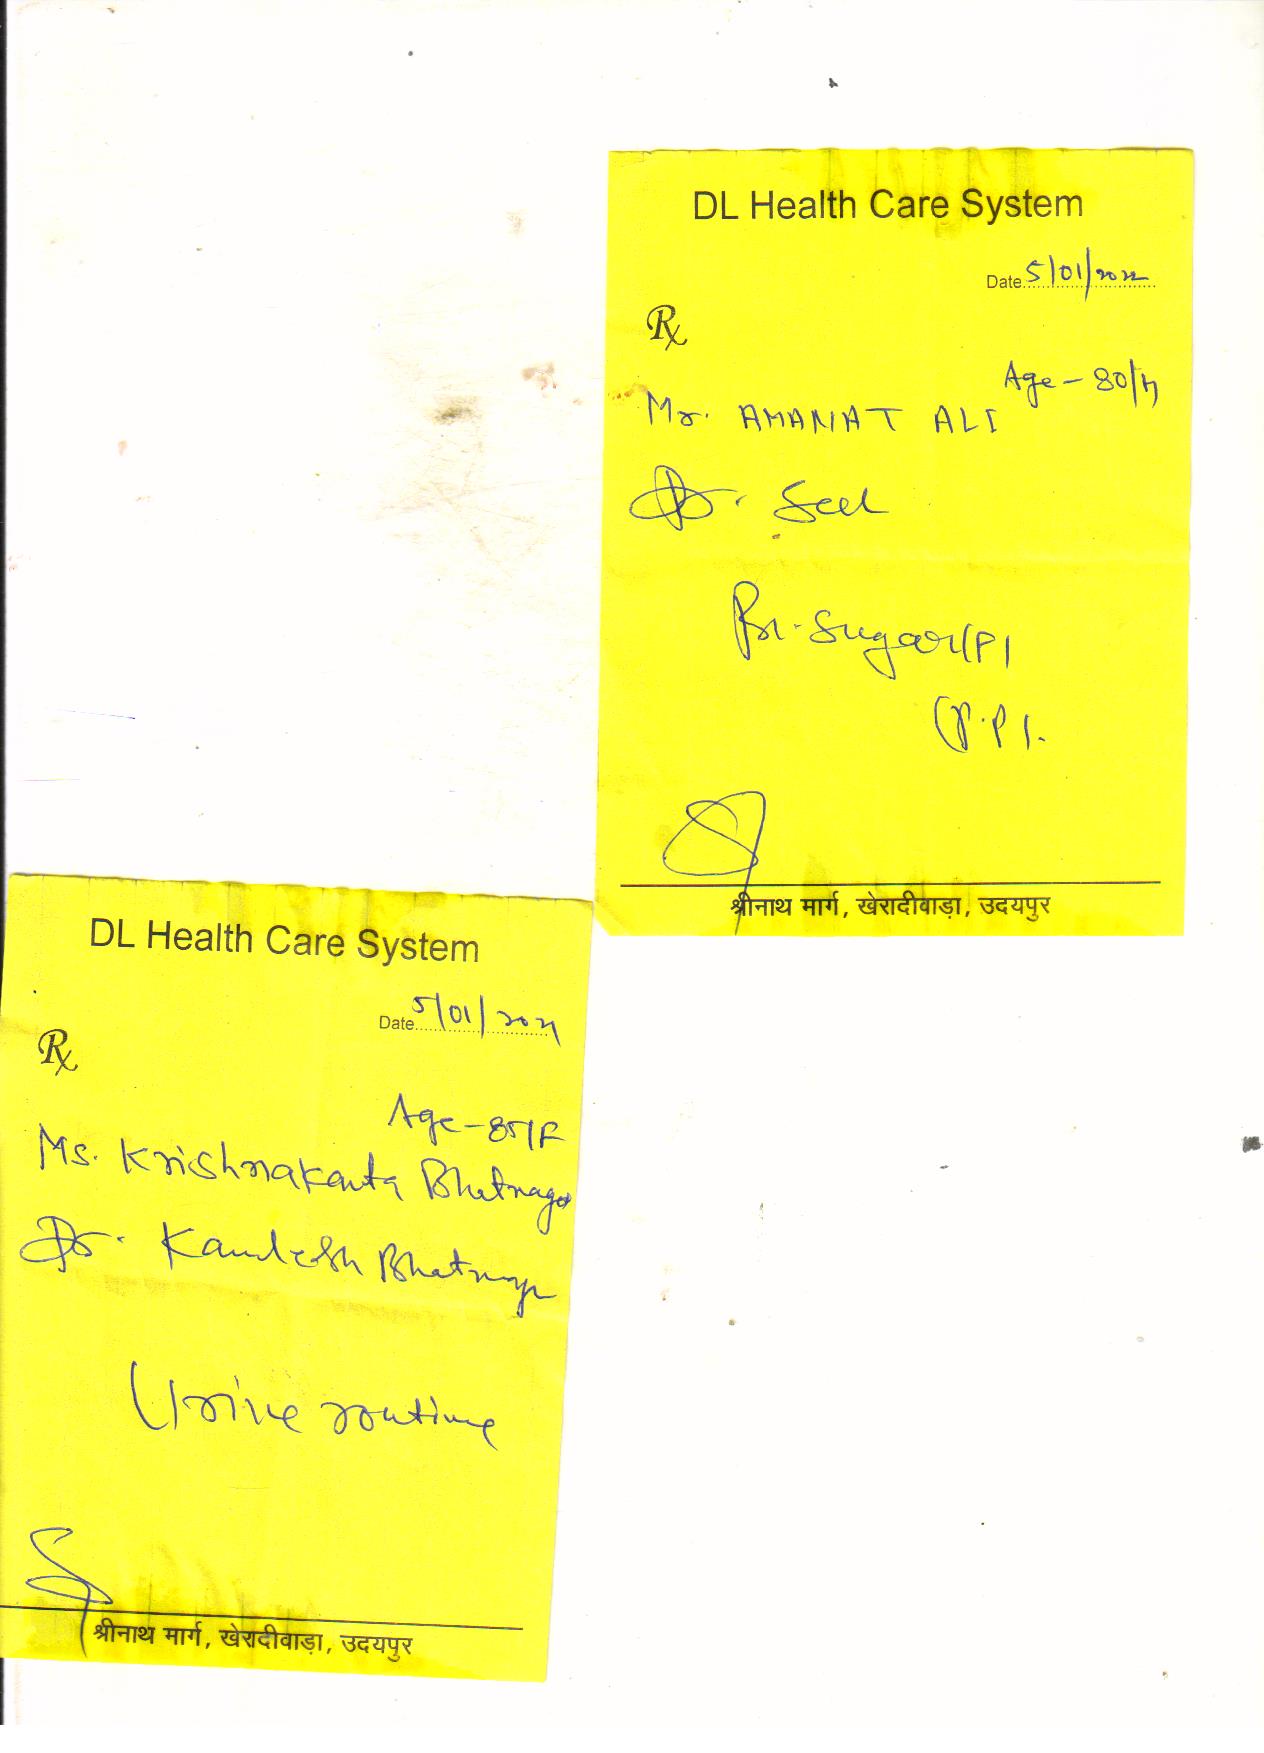 DL Health Care System
Date 5/01/2022
Rx
Age - 80/M
Mr. AMANAT ALI
Dr. Seel
Bl. Sugar (F)
(P.P).
श्रीनाथ मार्ग, खेरादीवाड़ा, उदयपुर
DL Health Care System
Date 5/01/2022
Rx
Age - 85/F
Ms. Krishnakanta Bhatnagar
Dr. Bhatnagar
Urine routine
श्रीनाथ मार्ग, खेरादीवाड़ा, उदयपुर